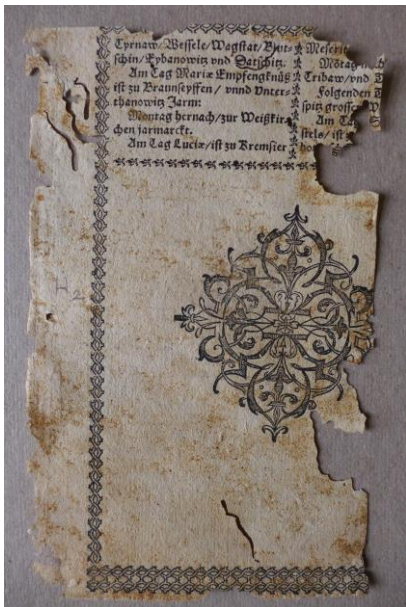 Tyrnaw/Wessele/Wagstat/
schin/Eybanowitz vnd Datschitz.
Am Tag Mariæ Empfengknüß
ist zu Braunseyffen/ vnnd Vnter-
thanowitz Jarm:
Montag hernach/zur Weißkir-
chen jarmarckt.
Am Tag Luciæ/ist zu Kremsier
Meserit
Môtag
Tribaw/vnd
Folgenden
spitz grosser
Am
stels/ist